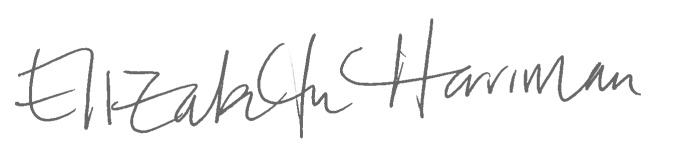 Elizabeth Harriman